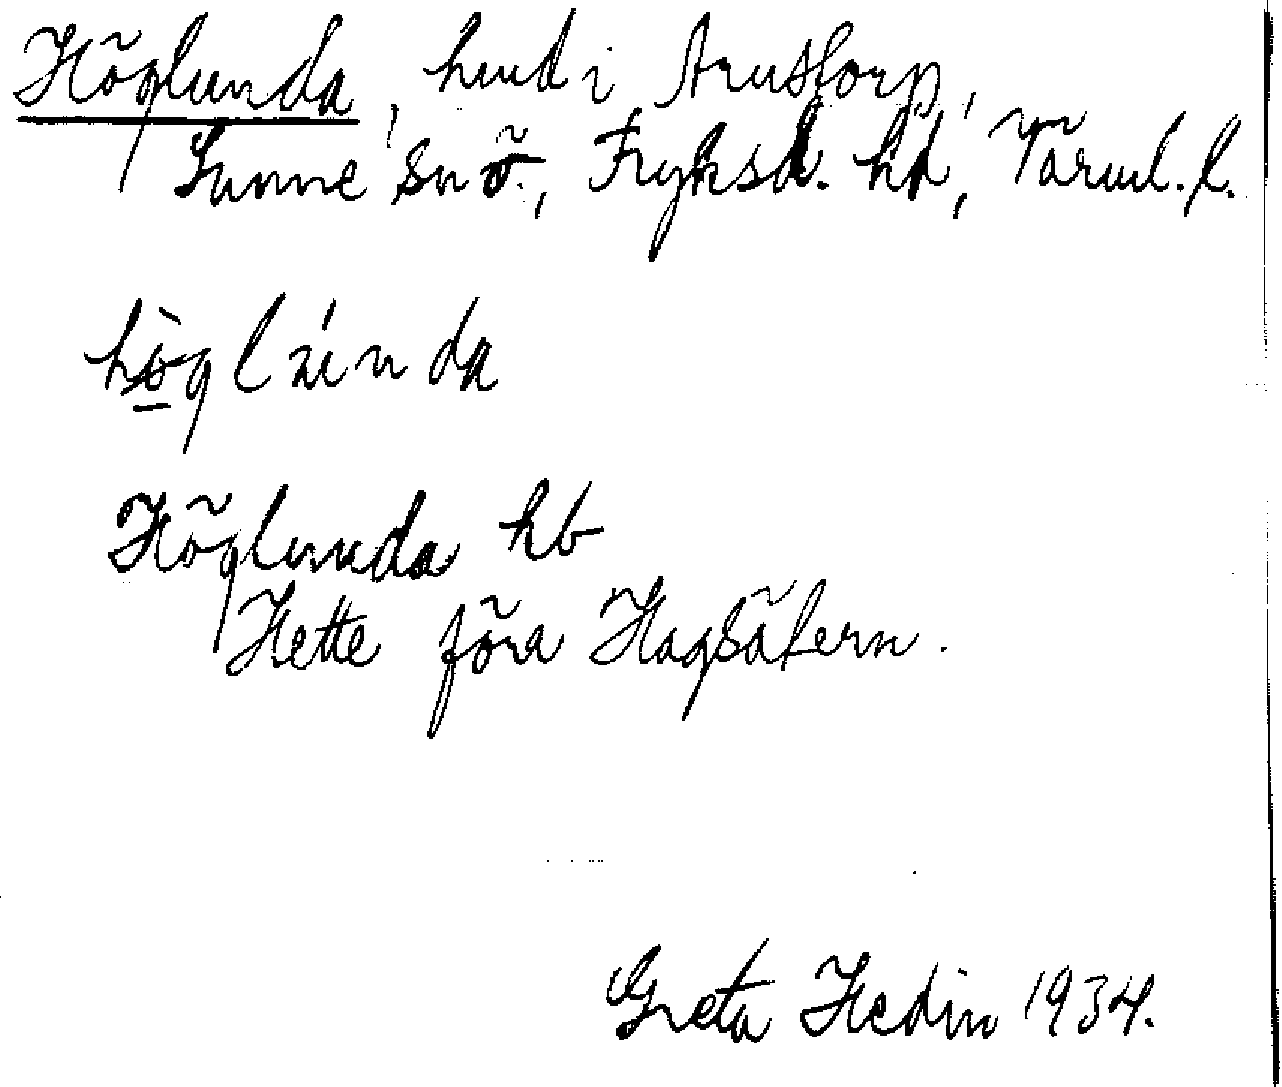 Höglunda, hmd i Arustorp,
Sunne snö., Fryksd. hd, Värml. l.
Höglunda hb
Hette förr Hagsätern.
Greta Hedin 1934.